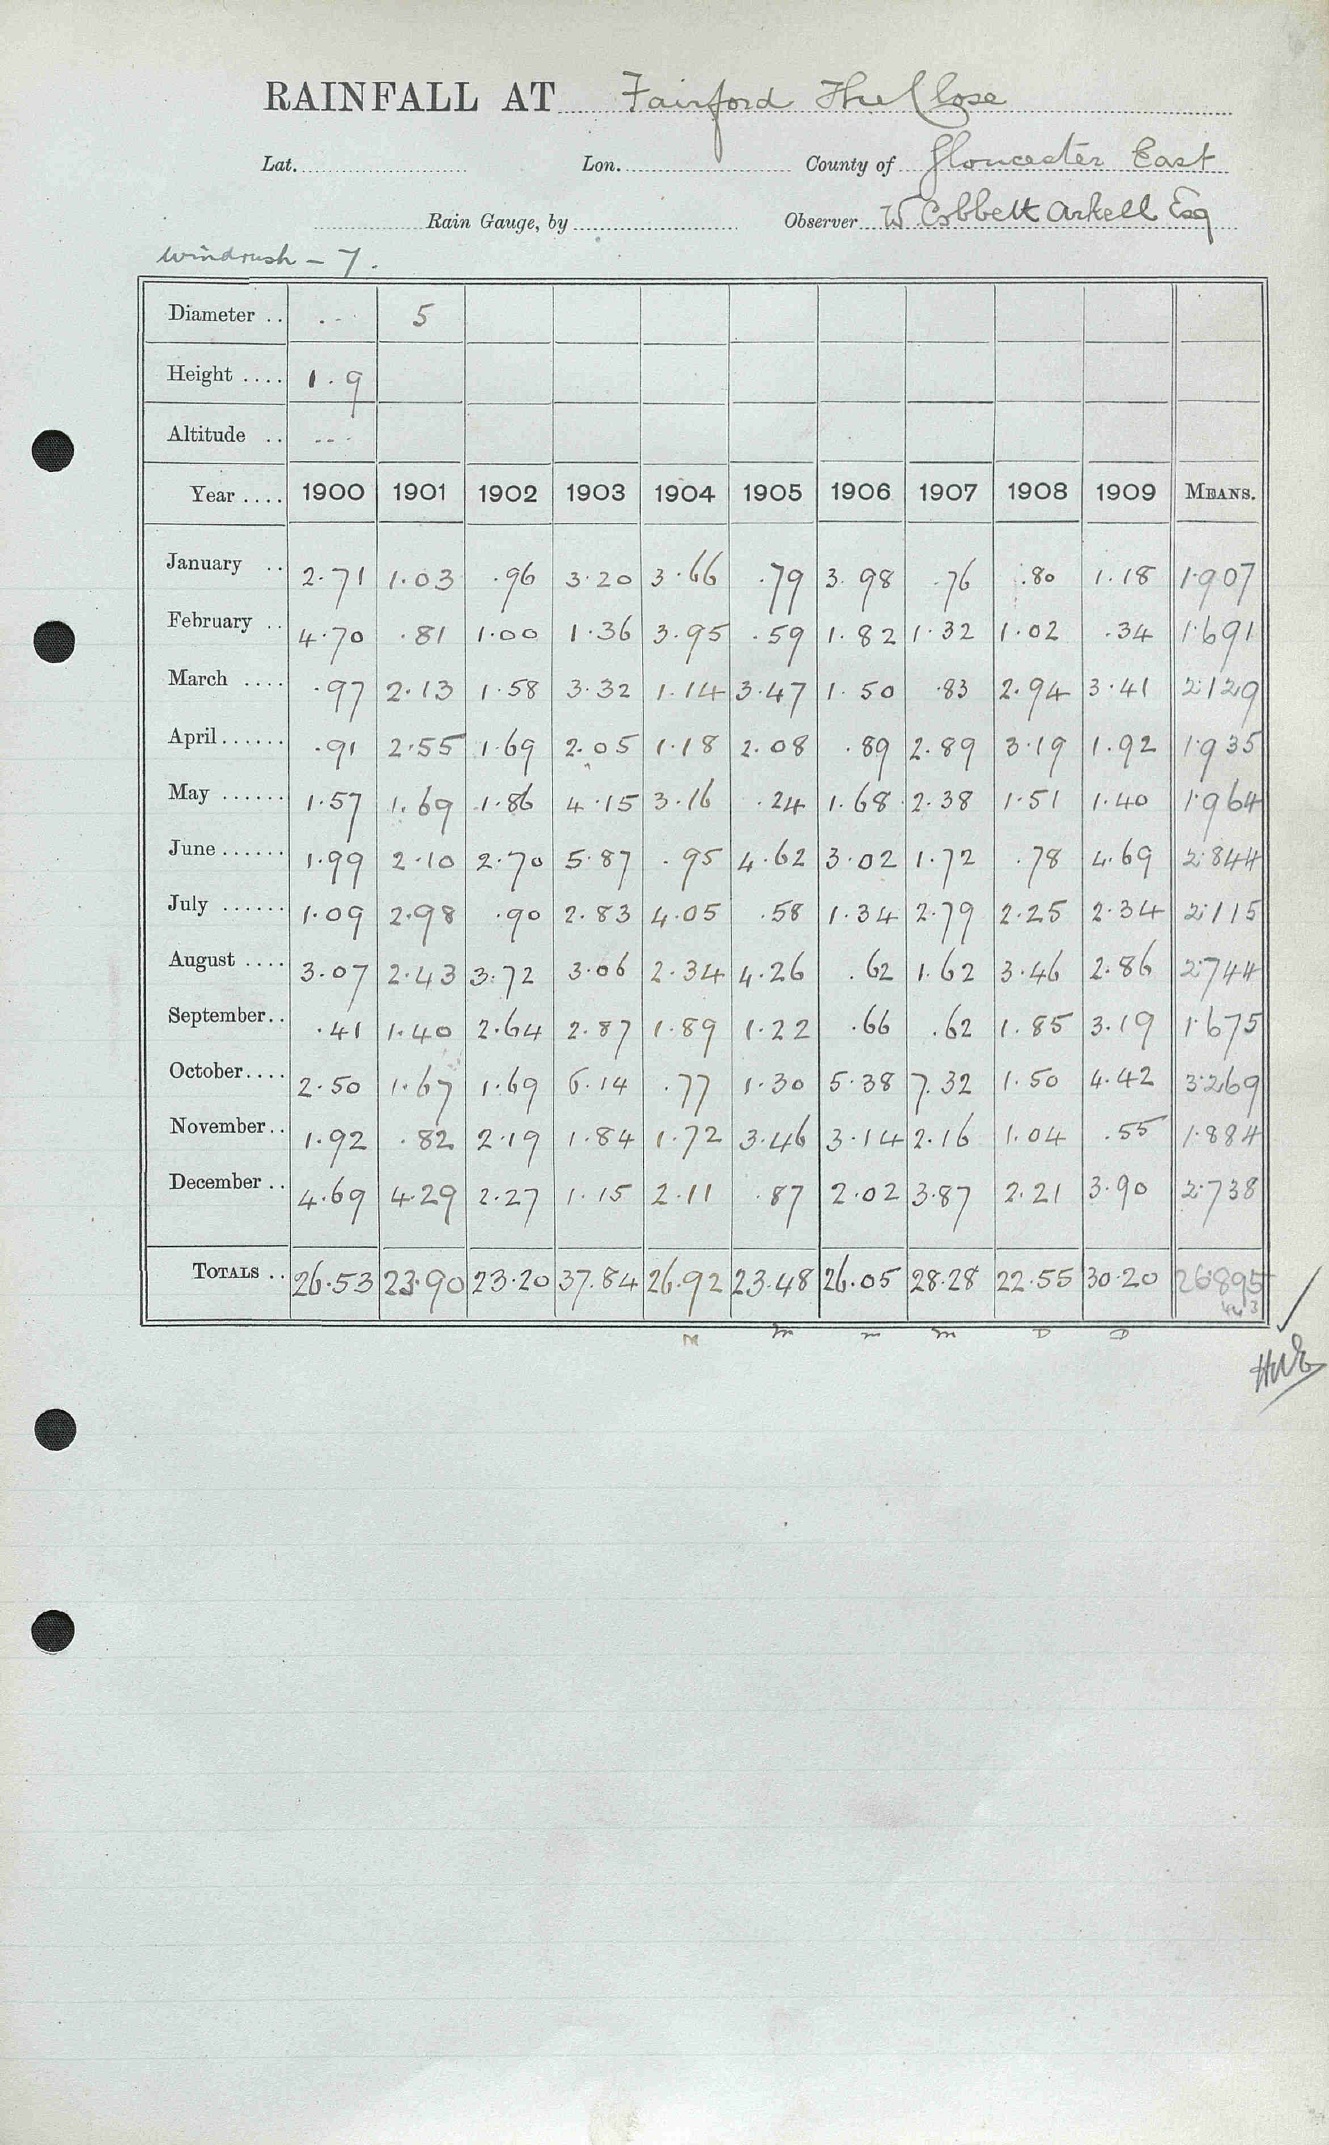 RAINFALL AT Fairford The Close
Lat. Lon. County of Gloucester East
Rain Gauge, by Observer W Cobbett Arkell Esq
Windrush - 7.
Diameter .. . - - 5
Height .... 1.9
Altitude .. - - -
Year .... 1900 1901 1902 1903 1904 1905 1906 1907 1908 1909 MEANS.
January .. 2.71 1.03 .96 3.20 3.66 .79 3.98 .76 .80 1.18 1.907
February .. 4.70 .81 1.00 1.36 3.95 .59 1.82 1.32 1.02 .34 1.691
March .... .97 2.13 1.58 3.32 1.14 3.47 1.50 .83 2.94 3.41 2.129
April...... .91 2.55 1.69 2.05 1.18 2.08 .89 2.89 3.19 1.92 1.935
May ...... 1.57 1.69 1.86 4.15 3.16 .24 1.68 2.38 1.51 1.40 1.964
June ...... 1.99 2.10 2.70 5.87 .95 4.62 3.02 1.72 .78 4.69 2.844
July ...... 1.09 2.98 .90 2.83 4.05 .58 1.34 2.79 2.25 2.34 2.115
August .... 3.07 2.43 3.72 3.06 2.34 4.26 .62 1.62 3.46 2.86 2.744
September.. .41 1.40 2.64 2.87 1.89 1.22 .66 .62 1.85 3.19 1.675
October.... 2.50 1.67 1.69 6.14 .77 1.30 5.38 7.32 1.50 4.42 3.269
November.. 1.92 .82 2.19 1.84 1.72 3.46 3.14 2.16 1.04 .55 1.884
December .. 4.69 4.29 2.27 1.15 2.11 .87 2.02 3.87 2.21 3.90 2.738
TOTALS .. 26.53 23.90 23.20 37.84 26.92 23.48 26.05 28.28 22.55 30.20 26.895
M m m m D D